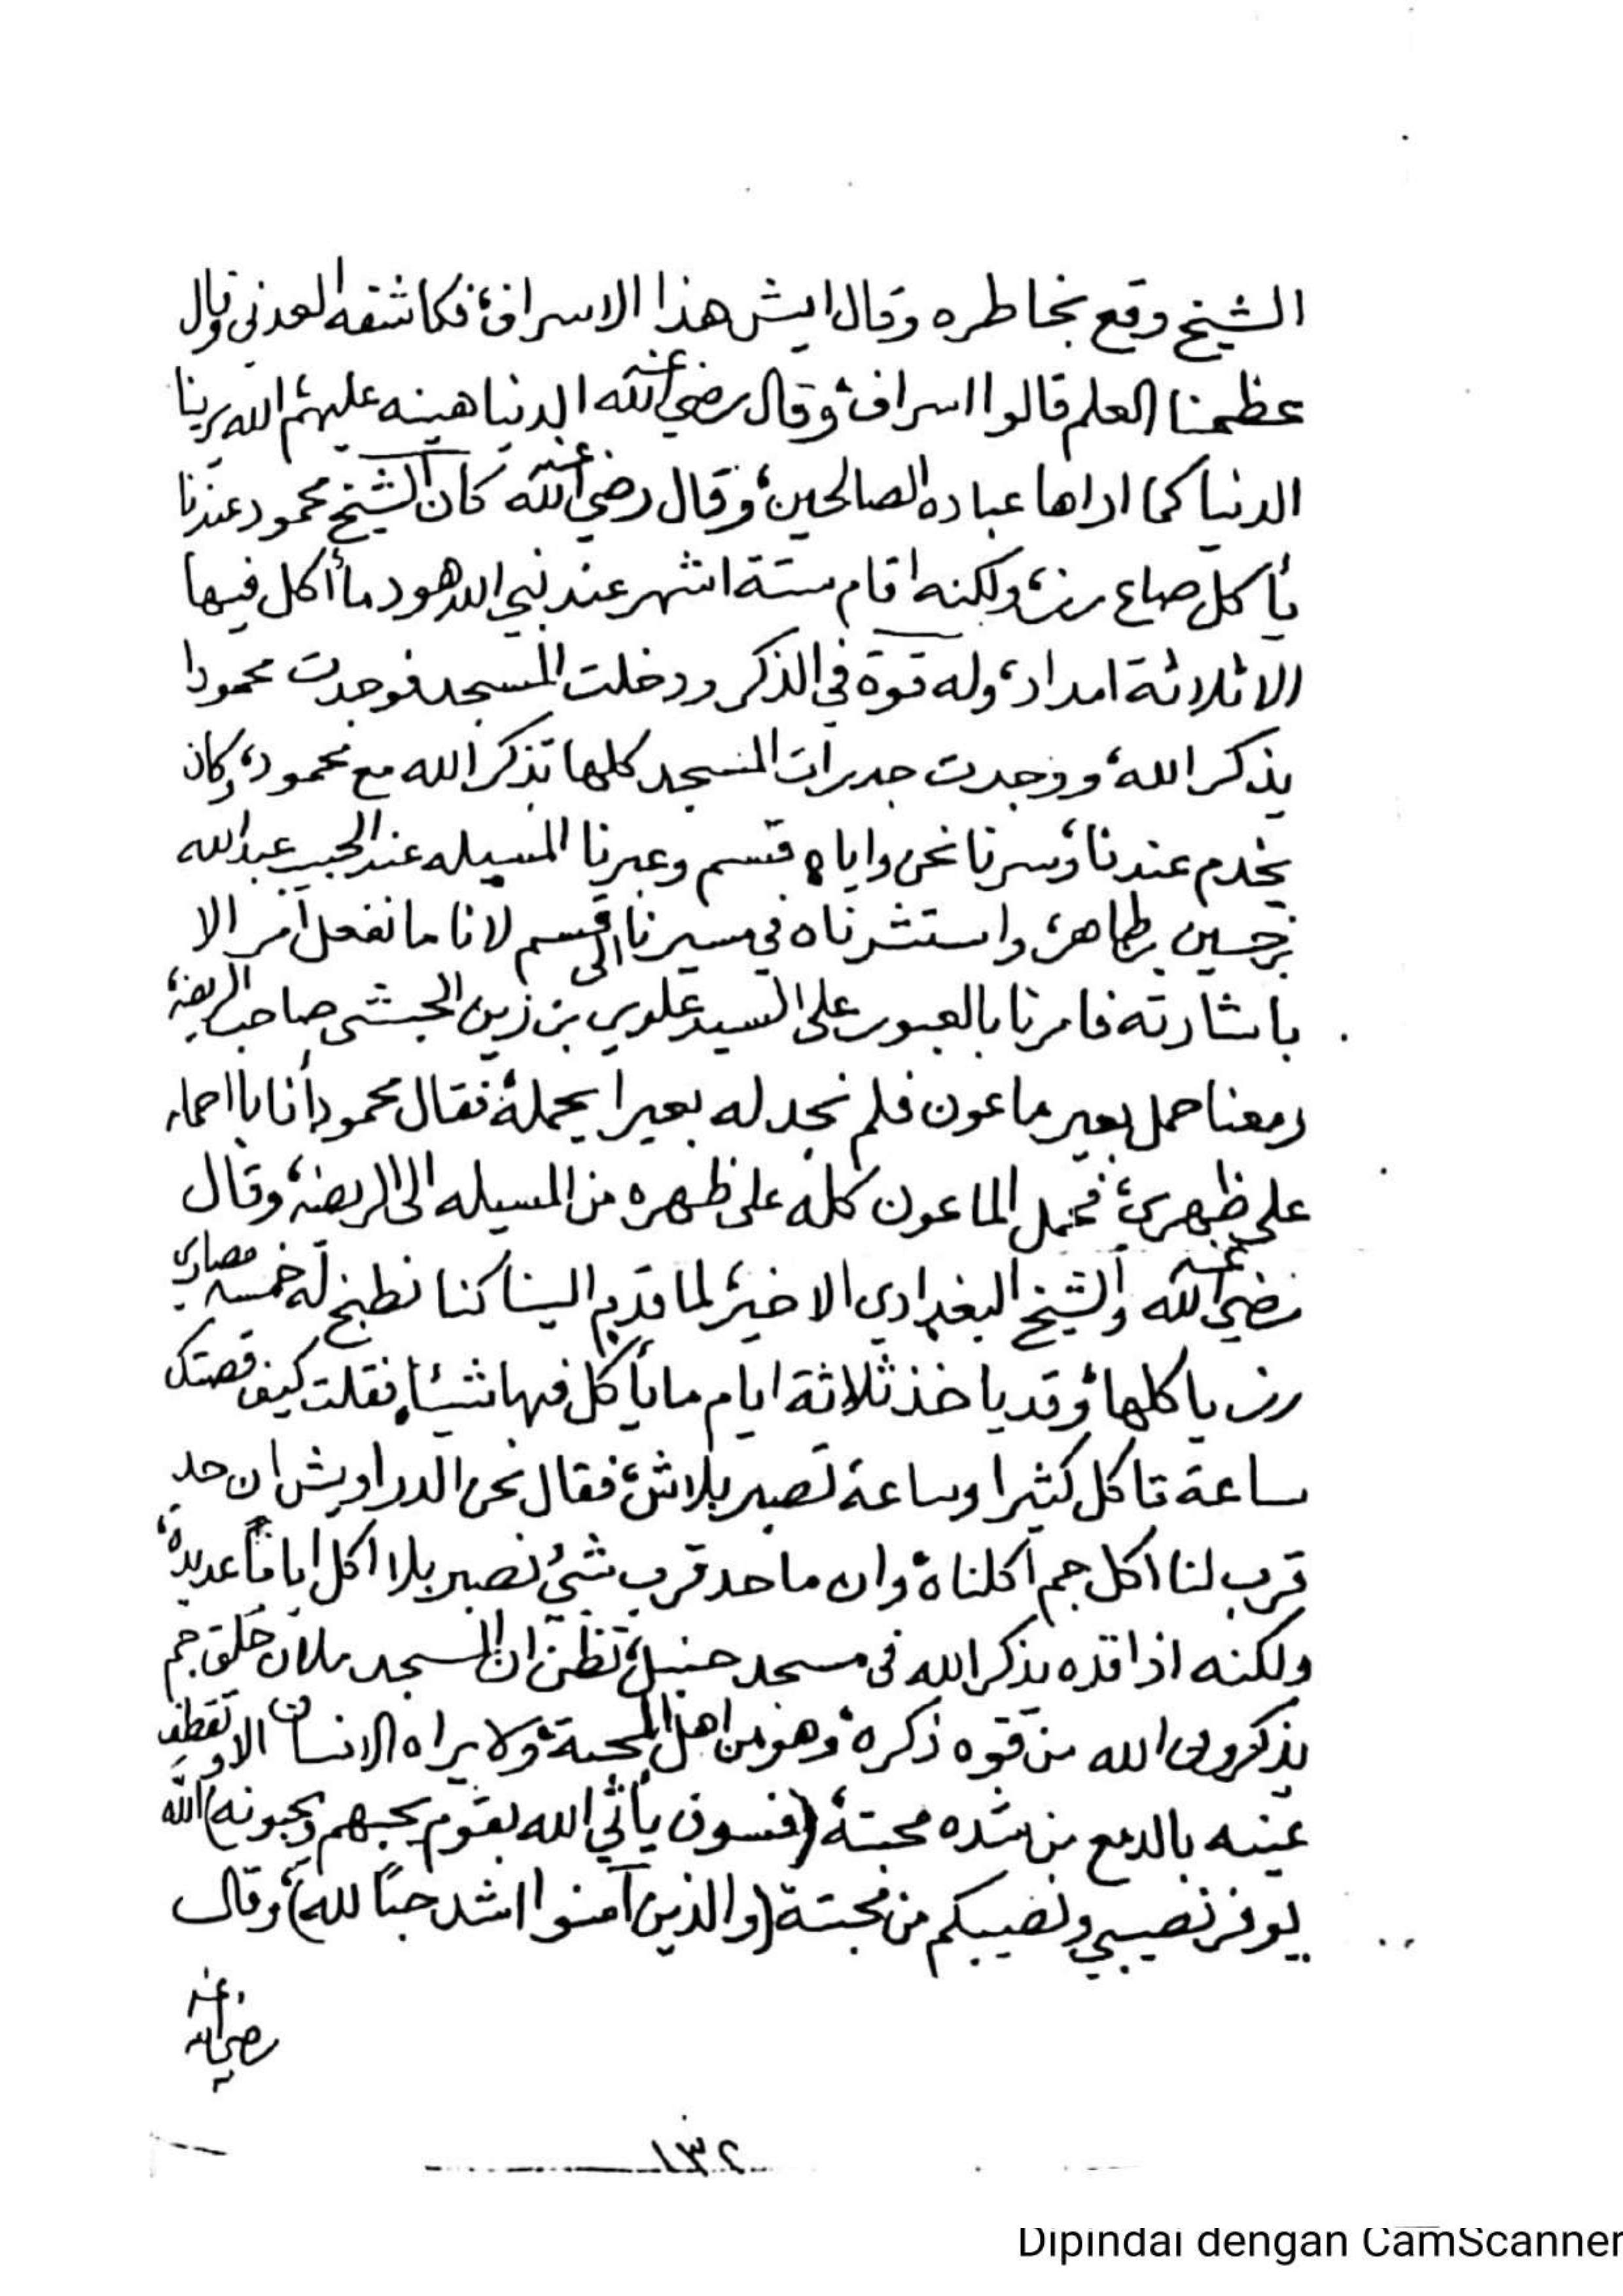 الشيخ وقع بخاطره وقال ايش هذا الاسراف، فكاشفه العدني وقال
عظمنا العلم قالوا اسراف، وقال رضي الله عنه الدنيا هينه عليهم الله يرينا
الدنيا كما اراها عباده الصالحين، وقال رضي الله عنه كان الشيخ محمود عندنا
يأكل صاع رز، ولكنه اقام ستة اشهر عند نبي الله هود ما أكل فيها
الا ثلاثة امداد، وله قوة في الذكر ودخلت المسجد فوجدت محمودا
يذكر الله، ووجدت جدرات المسجد كلها تذكر الله مع محمود، وكان
يخدم عندنا، وسرنا نحن واياه قسم وعبرنا المسيله عند الحبيب عبدالله
بن حسين بطاهر، واستشرناه في مسيرنا الى قسم لانا ما نفعل أمر الا
باشارته فامرنا بالعبور على السيد علوي بن زين الحبشي صاحب الريضة،
ومعنا حمل بعير ماعون فلم نجد له بعيرا يحمله، فقال محمود أنا با احمله
على ظهري، فحمل الماعون كله على ظهره من المسيله الى الريضة، وقال
رضي الله عنه والشيخ البغدادي الاخير، لما قدم الينا كنا نطبخ له خمسه مصاري
رز ياكلها، وقد ياخذ ثلاثة ايام ما يأكل فيها شيئا، فقلت كيف قصتك
ساعة تاكل كثيرا وساعة تصبر بلاش، فقال نحن الدراويش ان حد
قرب لنا اكل جم أكلناه وان ماحد قرب شيء نصبر بلا اكل اياماً عديدة،
ولكنه اذا قده يذكر الله في مسجد حنبل، تظن ان المسجد ملان خلق جم
يذكرون الله من قوه ذكره، وهو من اهل المحبة، ولا يراه الانسان الا وتقطف
عينه بالدمع من شده محبته (فسوف يأتي الله بقوم يحبهم ويحبونه) الله
يوفر نصيبي ونصيبكم من محبته (والذين آمنوا اشد حبًا لله)، وقال
رضي الله عنه
١٣٢
Dipindai dengan CamScanner